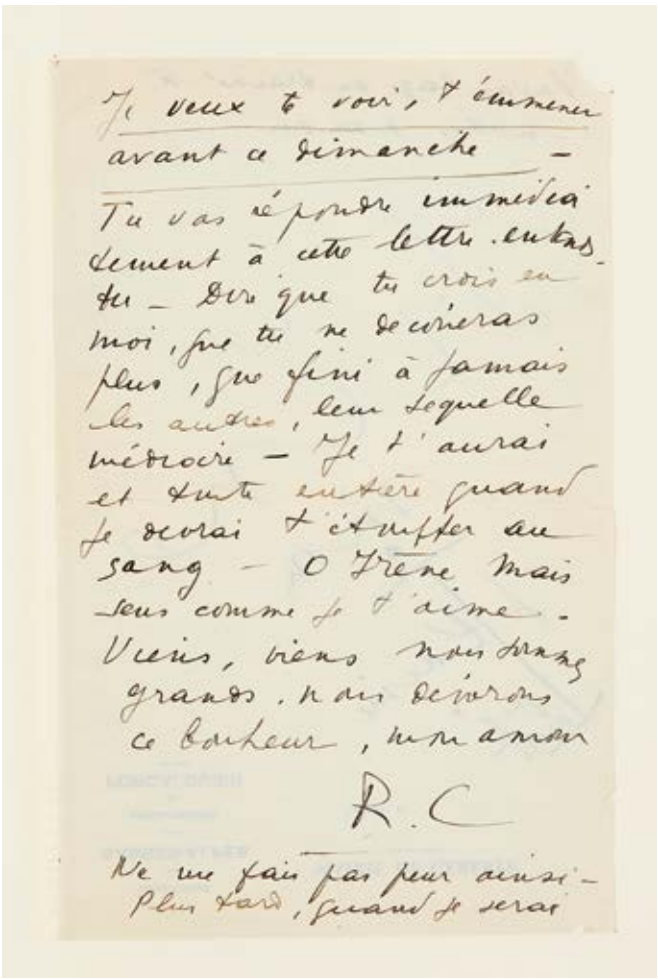 Je veux te voir, t'emmener
avant ce dimanche –
Tu vas répondre immédia
tement à cette lettre. entends-
tu – Dire que tu crois en
moi, que tu ne
plus, que fini à jamais
les autres, leur sequelle
médiocre – Je t'aurai
et toute entière quand
je devrai t'étouffer au
sang – O Irène mais
sens comme je t'aime –
Viens, viens nous sommes
grands. nous
ce bonheur, mon amour
R. C
Ne me fais pas peur ainsi –
Plus tard, quand je serai